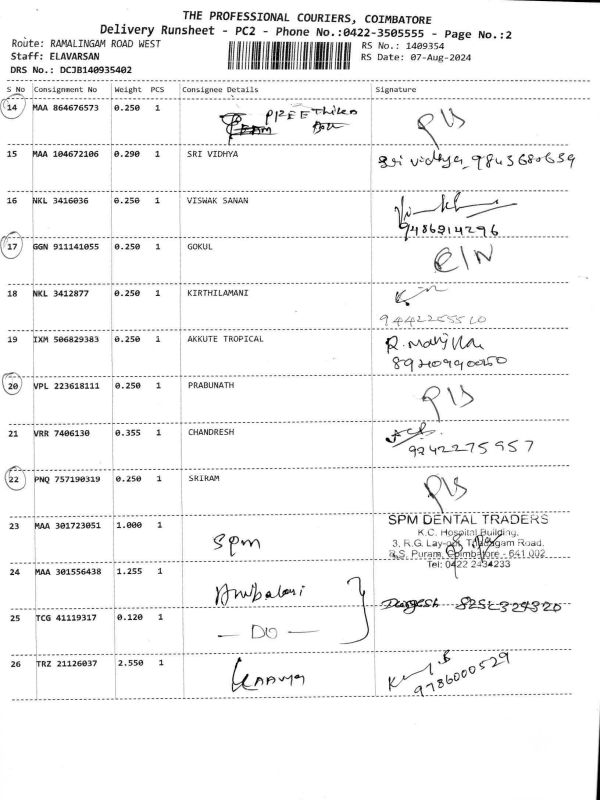 THE PROFESSIONAL COURIERS, COIMBATORE
Delivery Runsheet - PC2 - Phone No.:0422-3505555 - Page No.:2
Route: RAMALINGAM ROAD WEST
RS No.: 1409354
Staff: ELAVARSAN
RS Date: 07-Aug-2024
DRS No.: DCJB140935402
S No Consignment No Weight PCS Consignee Details Signature
14 MAA 864676573 0.250 1 P/S
15 MAA 104672106 0.290 1 SRI VIDHYA Sri vidhya, 9843680659
16 NKL 3416036 0.250 1 VISWAK SANAN
9486914296
17 GGN 911141055 0.250 1 GOKUL C/N
18 NKL 3412877 0.250 1 KIRTHILAMANI
9442255510
19 IXM 506829383 0.250 1 AKKUTE TROPICAL
20 VPL 223618111 0.250 1 PRABUNATH P/S
21 VRR 7406130 0.355 1 CHANDRESH
9242275957
22 PNQ 757190319 0.250 1 SRIRAM P/S
SPM DENTAL TRADERS
23 MAA 301723051 1.000 1 Spm
K.C. Hospital Building,
3. R.G. Lay-out, Road.
R.S. Puram, Coimbatore - 641 002
Tel: 0422 2434233
24 MAA 301556438 1.255 1
25 TCG 41119317 0.120 1 — DO —
26 TRZ 21126037 2.550 1 Kaavya
9786000529